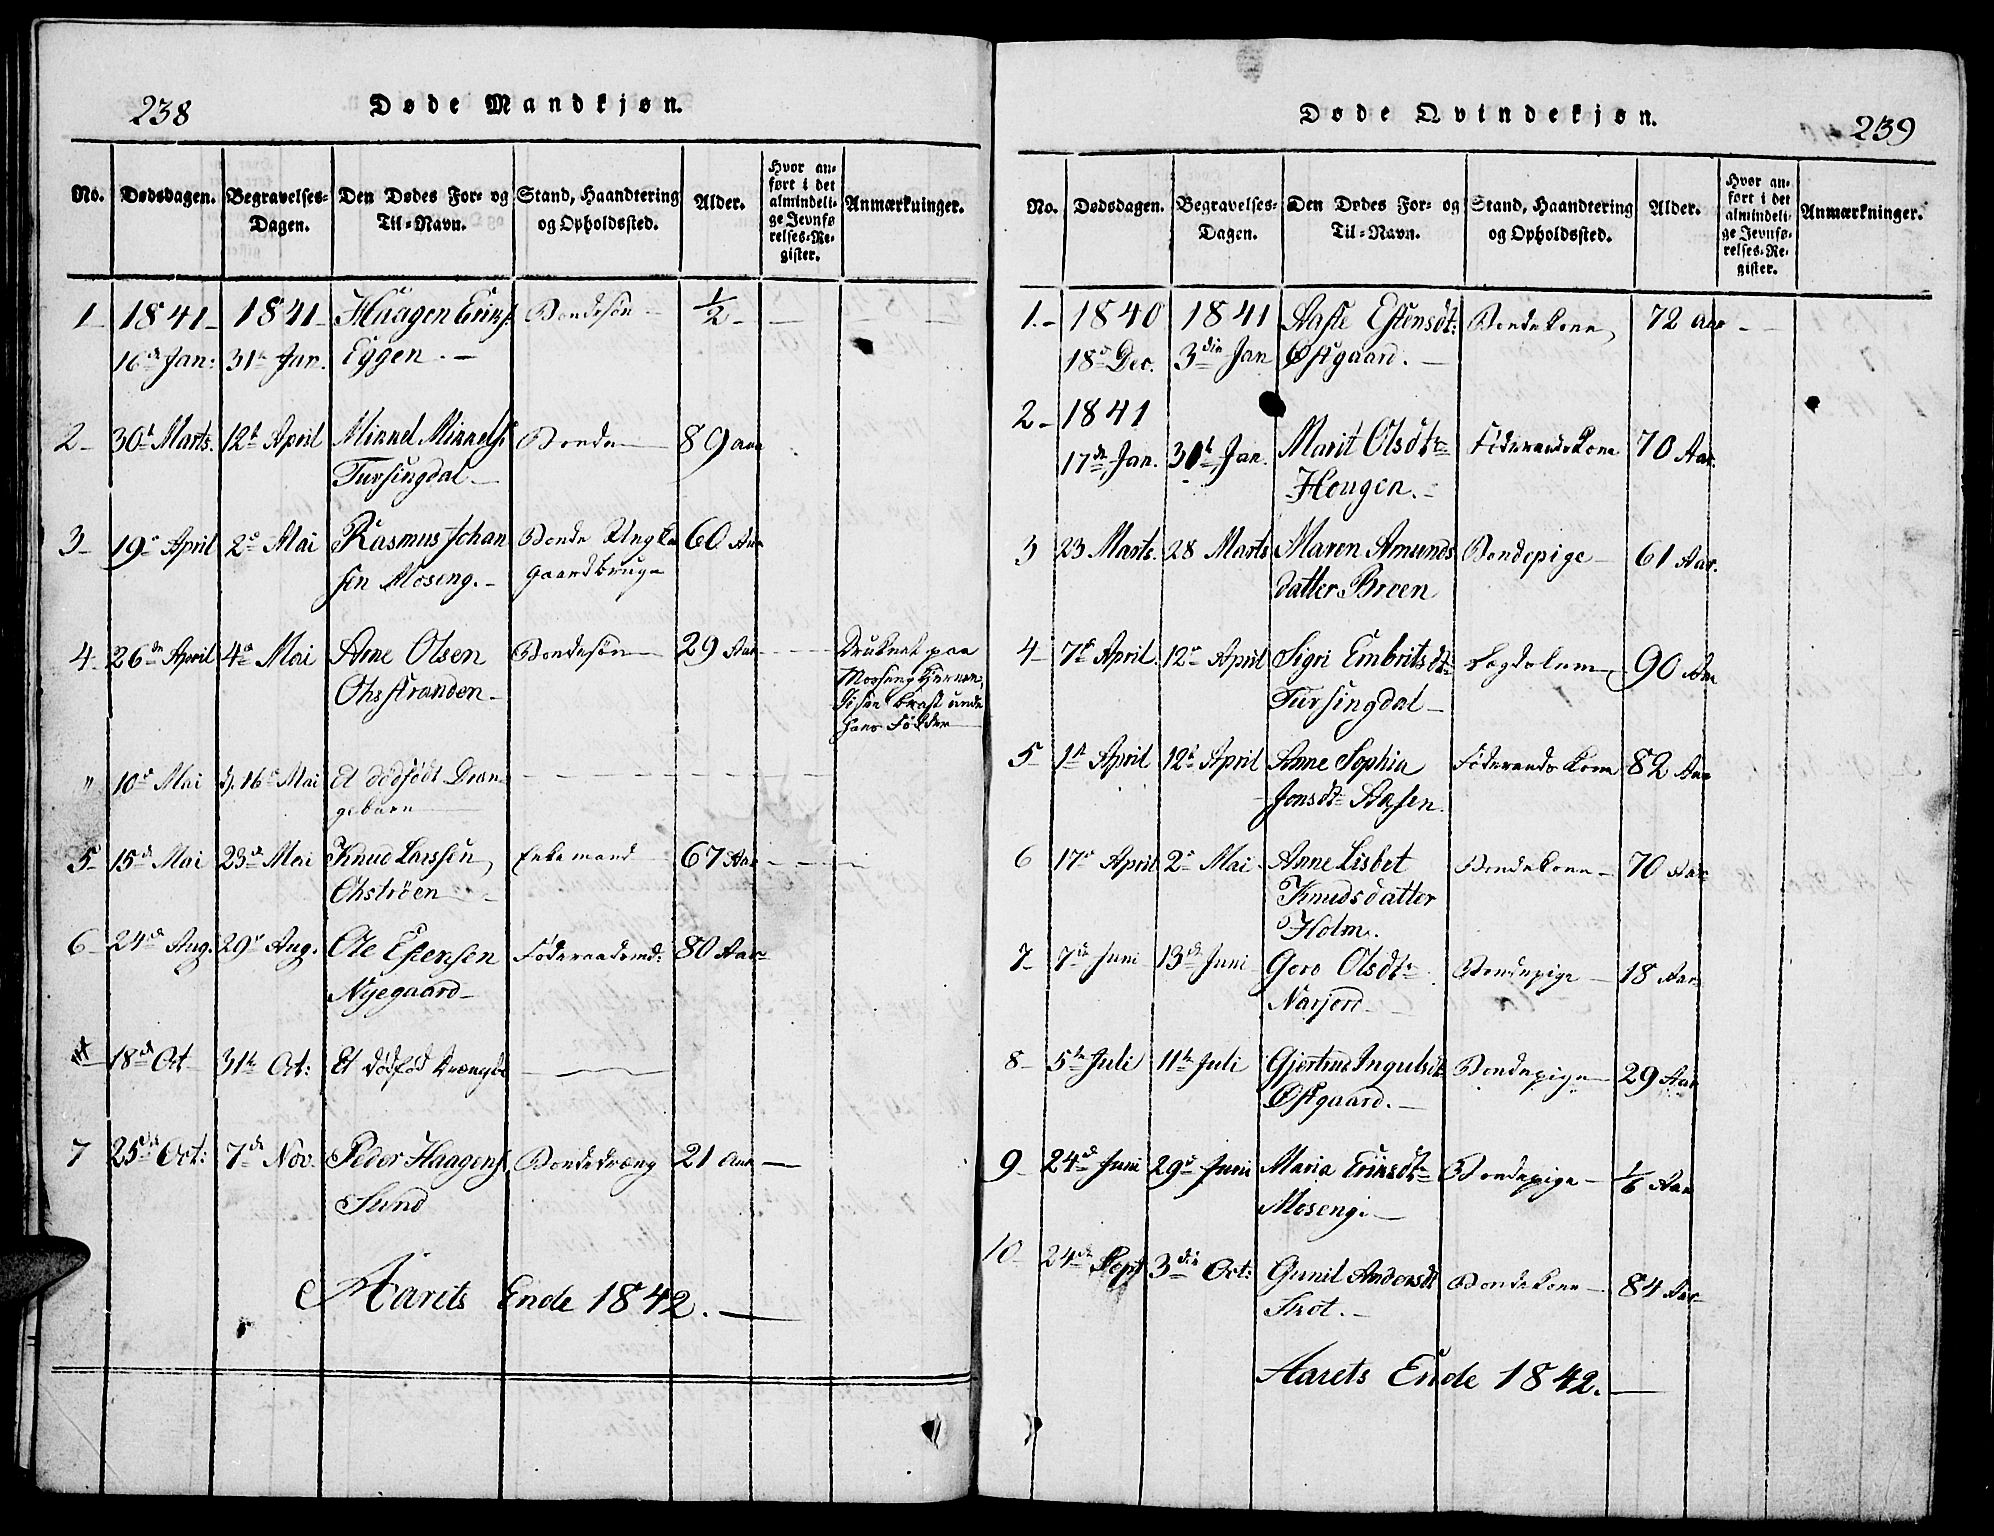 238
Døde Mandkjøn.
No.
Dødsdagen.
Begravelses-
Dagen.
Den Dødes For- og
Til-Navn.
Stand, Haandtering
og Opholdssted.
Alder.
Hvor an-
ført i det
almindeli-
ge Jevnfø
relses-Re-
gister.
Anmærkninger.
1 1841 1841 Haagen Eriks. Bondesøn ½
16de Jan: 31te Jan. Eggen.
2 30te Marts. 12te April Mikkel Mikkels. Bonde 89 Aar
Tufsingdal
3 19de April 2de Mai Rasmus Johan Bonde 60 Aar
sen Moseng. Gaardbruger
4 26de April 4de Mai Arne Olsen Bondesøn 29 Aar Druknet paa
Ohsstranden
Isen brast under
hans Fødder
" 10de Mai d. 16de Mai Et dødfødt Dren
gebarn
5 15de Mai 23de Mai Knud Larssen, Enkemand 67 Aar
Ohstrøen
6 24de Aug. 29de Aug. Ole Estensen Føderaadsmd: 80 Aar
Nyegaard
18de Oct 31te Oct: Et dødfød
7 25de Oct: 7de Nov. Peder Haagens. Bondedræng 21 Aar
Sund
Aarets Ende 1842.
Døde Qvindekjøn.
239
No.
Dødsdagen.
Begravelses-
Dagen.
Den Dødes For- og
Til-Navn.
Stand, Haandtering
og Opholdssted.
Alder.
Hvor an-
ført i det
almindeli-
ge Jevnfø-
relses-Re-
gister.
Anmærkninger.
1. 1840 1841 Aaste Estensdt: Bondekone, 72 Aar
18de Dec. 3die Jan Østgaard.
2 1841
17de Jan. 30te Jan. Marit Olsdtr Føderaadskone 70 Aar.
Hougen.
3 23 Marts. 28 Marts Maren Amunds Bondepige 61 Aar.
datter Broen
4 7de April 12te April Sigri Embritsdtr Lægdslem, 90 Aar
Tufsingdal
5 1te April 12te April Anne Sophia Føderaadskone 82 Aar
Jonsdtr Aasen.
6 17de April 2de Mai Anne Lisbet Bondekone 70 Aar
Knudsdatter
Holm.
7 7de Juni 13de Juni Goro Olsdtr Bondepige 18 Aar
Narjord
8 5te Juli 11te Juli Gjertrud Ingulsdt Bondepige 29 Aar
Østgaard.
9 24de Juni 29de Juni Maria Eriksdtr Bondepige 1/6 Aar
Moseng.
10 24de Sept 3die Oct: Gunil Andersdt Bondekone 84 Aar
Skot.
Aarets Ende 1842.